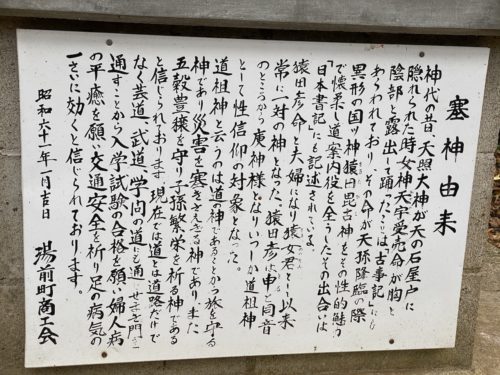 塞神由来
神代の昔、天照大神が天の石屋戸に
隠れられた時女神天宇受売命が胸と
陰部を露出して踊ったことは古事記に
あらわれており、その命が天孫降臨の際
異形の国ッ神猿田毘古神をその性的魅力
で懐柔し道案内役を全うしたその出合いは
日本書記にも記述されている。
猿田彦命と夫婦になり猿女君といい以来
常に一対の神となった、猿田彦は申と同音
のところから庚神様となりいつしか道祖神
として性信仰の対象となった
道祖神と云うのは道の神であるとか旅を守る
神であり災害を塞ぎさえぎる神でありまた
五穀豊穣を守り子孫繁栄を祈る神である
と信じられております 現在では道とは道路だけで
なく芸道、武道、学問の道にも通じせまき門を
通すことから入学試験の合格を願い婦人病
の平癒を願い交通安全を祈り足の病気の
一さいに効くと信じられております。
昭和六十一年一月吉日
湯前町商工会